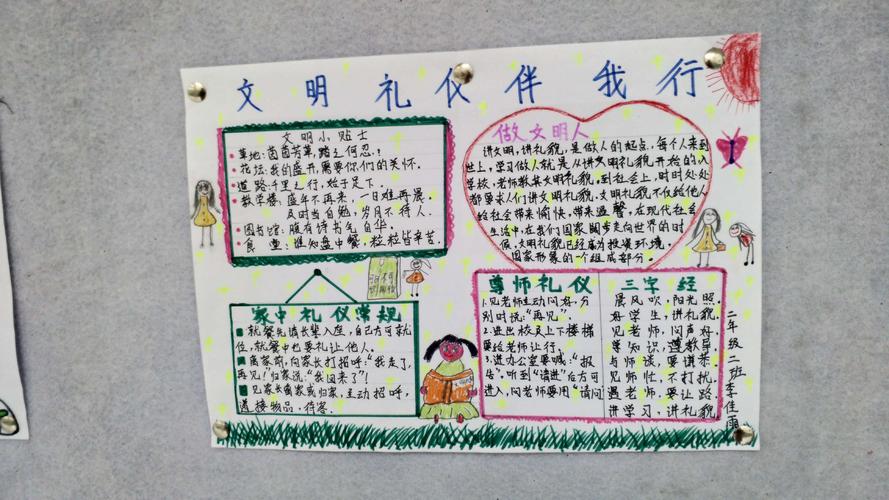 文明礼仪伴我行
文明小贴士
草地:茵茵芳草,踏之何忍?
花坛:我的盛开,需要你们的关怀.
道路:千里之行,始于足下.
教学楼:盛年不再来,一日难再晨.
及时当自勉,岁月不待人.
图书馆:腹有诗书气自华.
食堂:谁知盘中餐,粒粒皆辛苦.
做文明人
讲文明,讲礼貌,是做人的起点,每个人来到
世上,学习做人就是从讲文明礼貌开始的,入
学校,老师教其文明礼貌,到社会上,时时处处
都要求人们讲文明礼貌,文明礼貌不仅给他人
给社会带来愉快,带来温馨,在现代社会
生活中,在我们国家阔步走向世界的时
候,文明礼貌已经成为投资环境,
国家形象的一个组成部分.
家中礼仪常规
就餐先请长辈入座,自己方可就
位,就餐中也要礼让他人.
离家前,向家长打招呼:"我走了,
再见!"归家说:"我回来了"!
见家长离家或归家,主动招呼,
道接物品,待客.
尊师礼仪
1.见老师主动问好,分
别时说:"再见".
2.进出校及上下楼梯
要给老师让行.
3.进办公室要喊:"报
告",听到"请进"后方可
进入,问老师要用"请问
三字经
晨风吹,阳光照.
好学生,讲礼貌.
见老师,问声好.
学知识,遵教导.
与师谈,要谦恭.
见师忙,不打扰.
遇老师,要让路.
讲学习,讲礼貌
二年级二班李佳雨